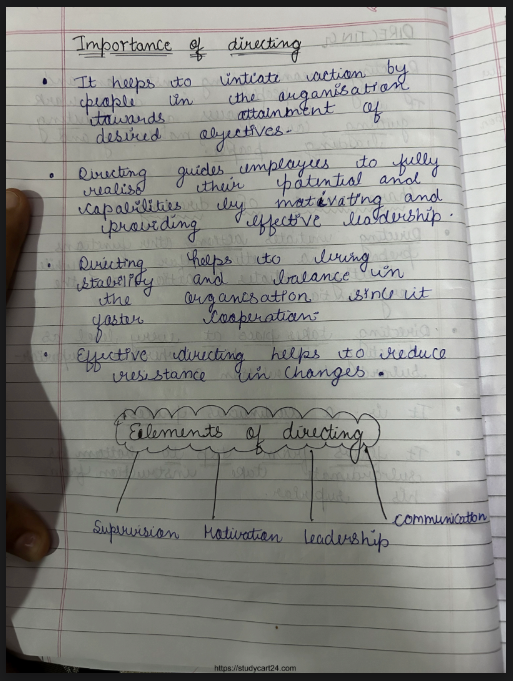 Importance of directing
• It helps to intiate action by
people in the organisation
towards attainment of
desired objectives.
• Directing guides employees to fully
realise their potential and
capabilities by motivating and
providing effective leadership.
• Directing helps to bring
stability and balance in
the organisation since it
foster cooperation
• Effective directing helps to reduce
resistance in changes.
Elements of directing
Supervision Motivation Leadership communication
https://studycart24.com